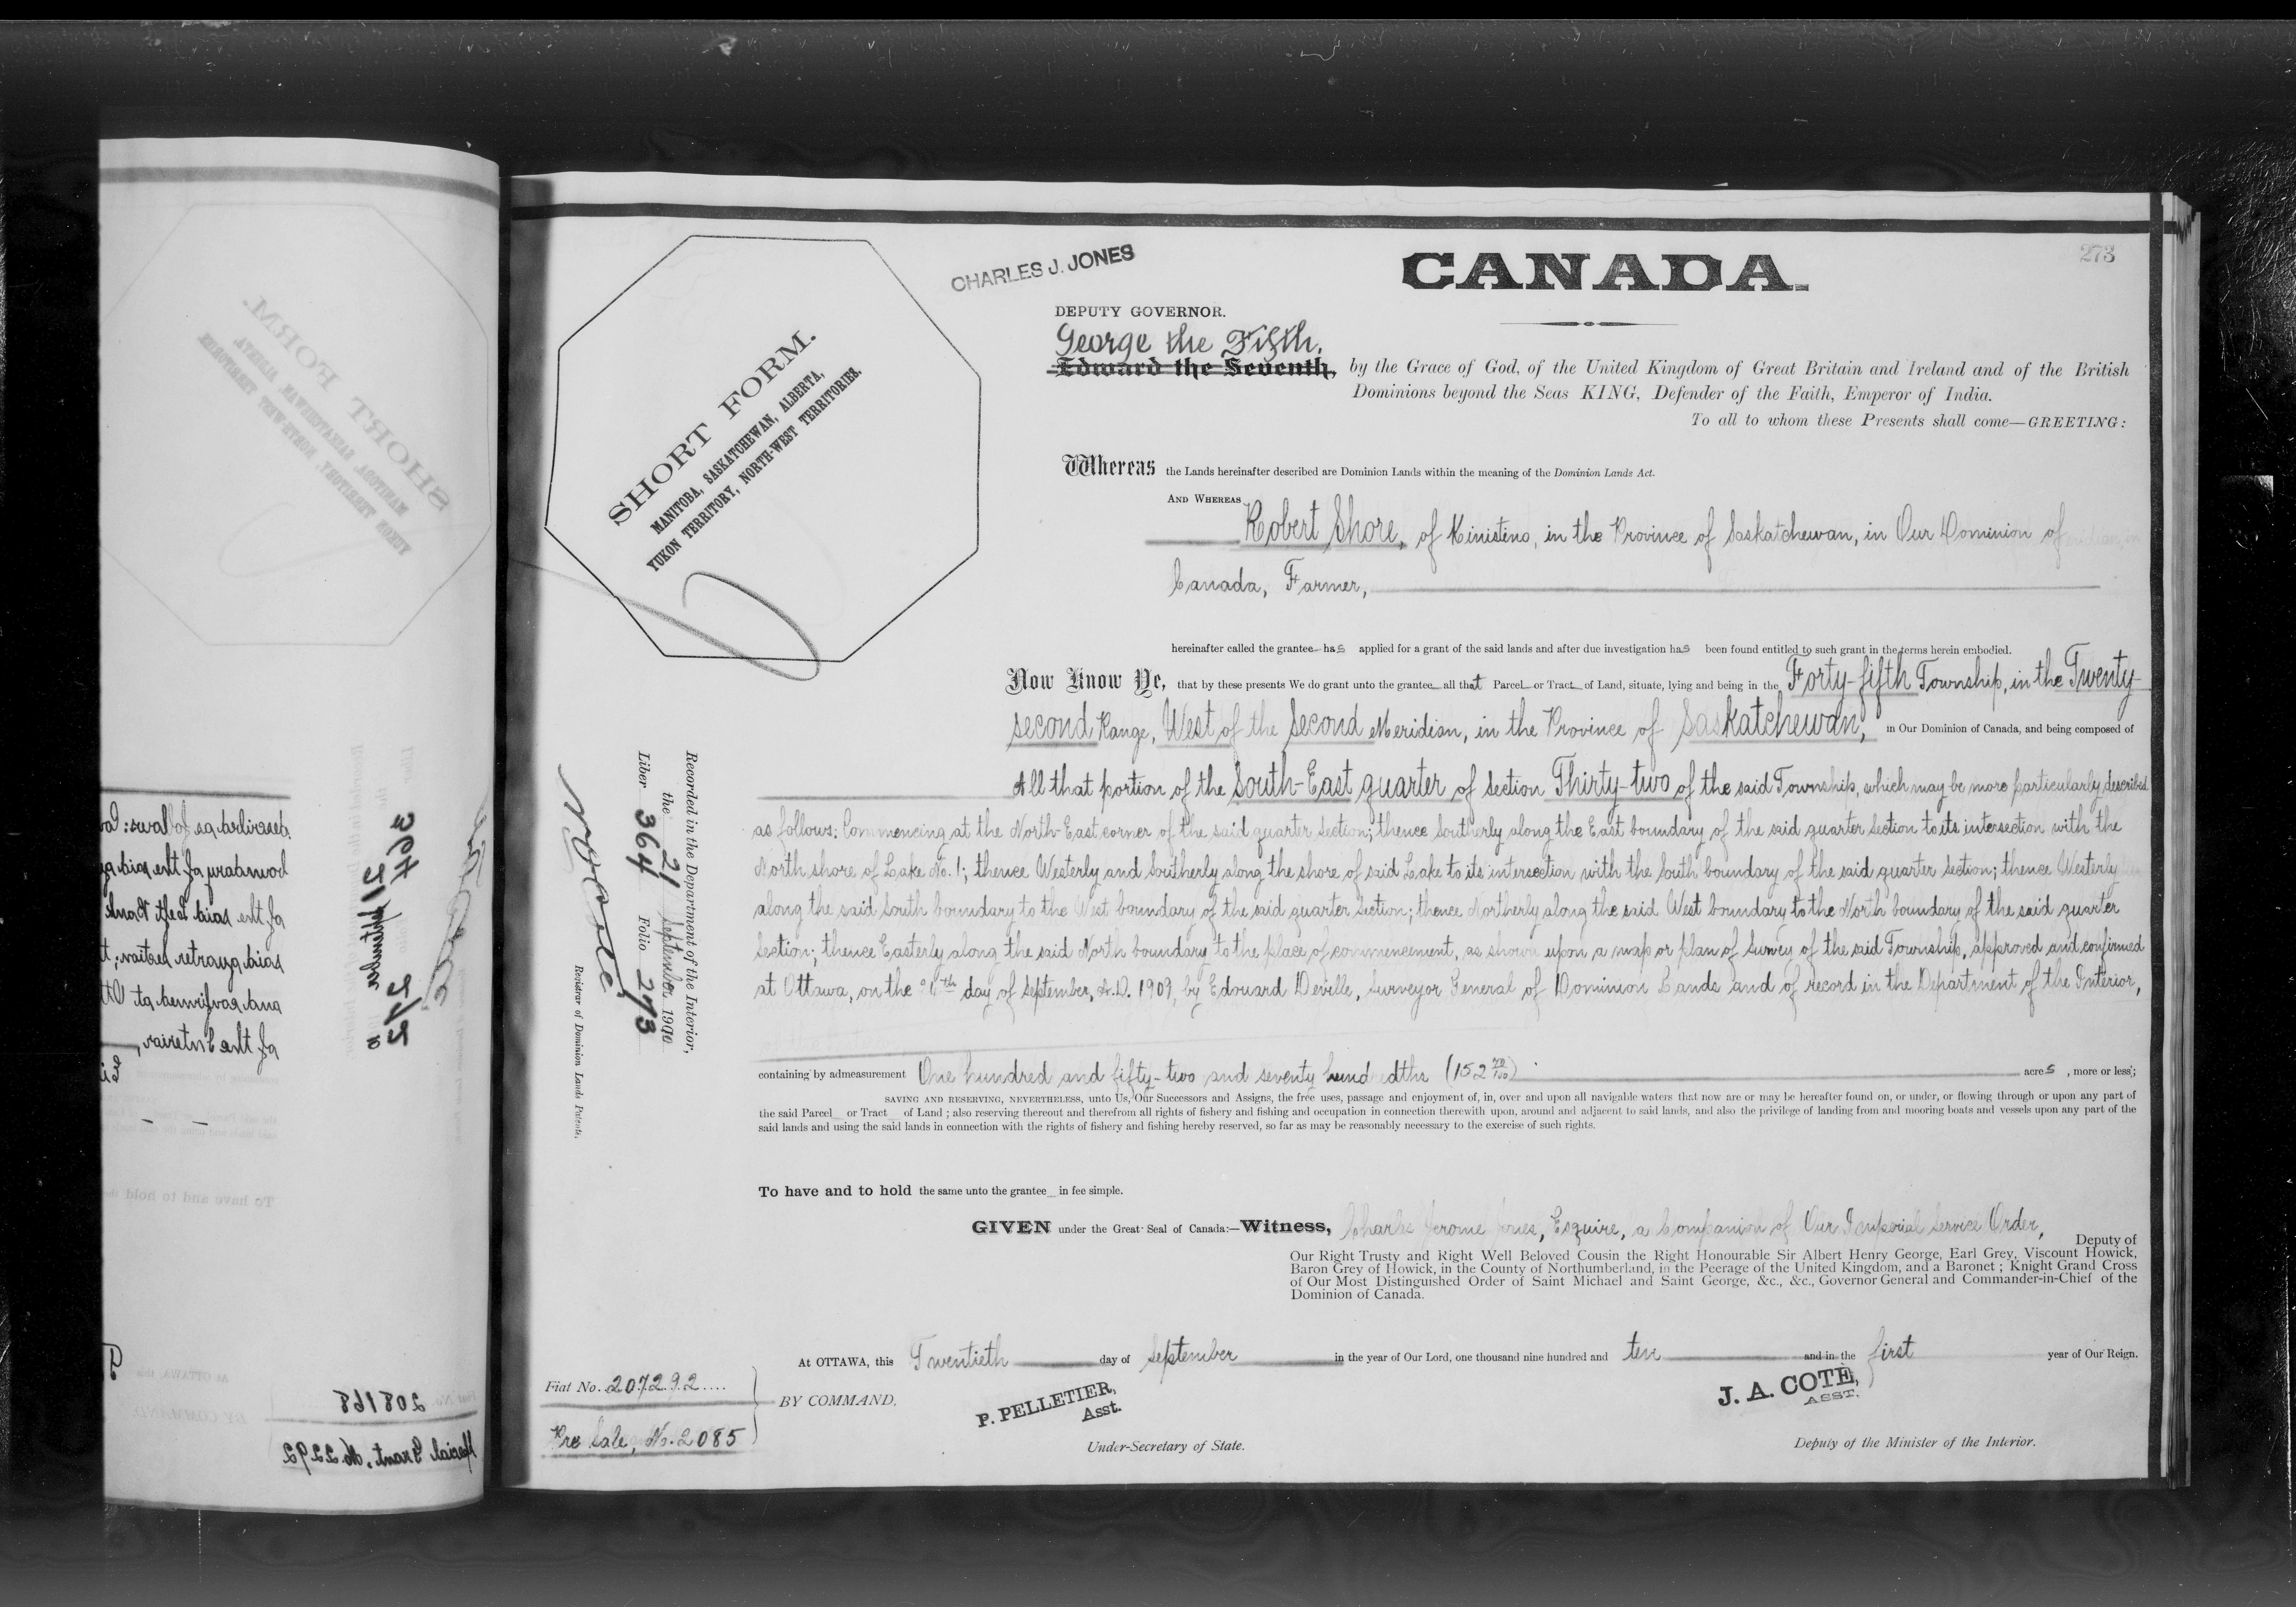 273
CHARLES J. JONES
CANADA.
DEPUTY GOVERNOR.
George the Fifth,
Edward the Seventh, by the Grace of God, of the United Kingdom of Great Britain and Ireland and of the British
Dominions beyond the Seas KING, Defender of the Faith, Emperor of India.
To all to whom these Presents shall come—GREETING:
SHORT FORM.
MANITOBA, SASKATCHEWAN, ALBERTA,
YUKON TERRITORY, NORTH-WEST TERRITORIES.
Whereas the Lands hereinafter described are Dominion Lands within the meaning of the Dominion Lands Act.
AND WHEREAS
Robert Shore, of Kinistino, in the Province of Saskatchewan, in Our Dominion of
Canada, Farmer,
hereinafter called the grantee has applied for a grant of the said lands and after due investigation has been found entitled to such grant in the terms herein embodied.
Now Know Ye, that by these presents We do grant unto the grantee all that Parcel or Tract of Land, situate, lying and being in the Forty-fifth Township, in the Twenty-
second Range, West of the Second Meridian, in the Province of Saskatchewan, in Our Dominion of Canada, and being composed of
All that portion of the South-East quarter of Section Thirty-two of the said Township, which may be more particularly described
as follows: Commencing at the North-East corner of the said quarter section; thence Southerly along the East boundary of the said quarter section to its intersection with the
North shore of Lake No. 1; thence Westerly and Southerly along the shore of said Lake to its intersection with the South boundary of the said quarter section; thence Westerly
along the said South boundary to the West boundary of the said quarter section; thence Northerly along the said West boundary to the North boundary of the said quarter
section; thence Easterly along the said North boundary to the place of commencement, as shown upon a map or plan of survey of the said Township, approved and confirmed
at Ottawa, on the day of September, A.D. 1909, by Edouard Deville, Surveyor General of Dominion Lands and of record in the Department of the Interior,
containing by admeasurement One hundred and fifty-two and seventy hundredths (152 70/100) acres, more or less;
SAVING AND RESERVING, NEVERTHELESS, unto Us, Our Successors and Assigns, the free uses, passage and enjoyment of, in, over and upon all navigable waters that now are or may be hereafter found on, or under, or flowing through or upon any part of
the said Parcel or Tract of Land ; also reserving thereout and therefrom all rights of fishery and fishing and occupation in connection therewith upon, around and adjacent to said lands, and also the privilege of landing from and mooring boats and vessels upon any part of the
said lands and using the said lands in connection with the rights of fishery and fishing hereby reserved, so far as may be reasonably necessary to the exercise of such rights.
To have and to hold the same unto the grantee in fee simple.
GIVEN under the Great Seal of Canada:—Witness, Charles Jerome Jones, Esquire, a Companion of Our Imperial Service Order, Deputy of
Our Right Trusty and Right Well Beloved Cousin the Right Honourable Sir Albert Henry George, Earl Grey, Viscount Howick,
Baron Grey of Howick, in the County of Northumberland, in the Peerage of the United Kingdom, and a Baronet ; Knight Grand Cross
of Our Most Distinguished Order of Saint Michael and Saint George, &c., &c., Governor General and Commander-in-Chief of the
Dominion of Canada.
At OTTAWA, this Twentieth day of September in the year of Our Lord, one thousand nine hundred and ten and in the first year of Our Reign.
BY COMMAND,
P. PELLETIER,
Asst.
Under-Secretary of State.
J. A. COTÉ,
ASST.
Deputy of the Minister of the Interior.
Fiat No. 207292
Pre Sale, No. 2085
Recorded in the Department of the Interior,
the 21 September 1910
Liber 364 Folio 273
Registrar of Dominion Lands Patents.
208168
Special Grant, No. 2292